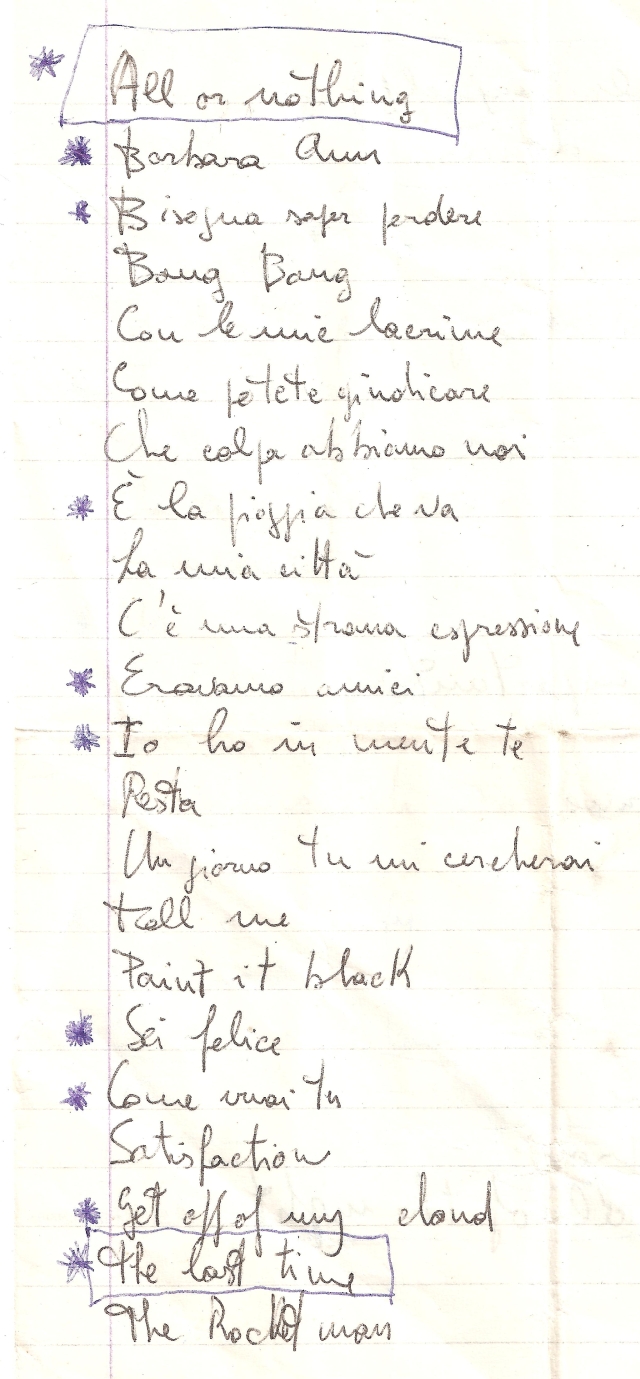 All or nothing
Barbara Ann
Bisogna saper perdere
Bang Bang
Con le mie lacrime
Come potete giudicare
Che colpa abbiamo noi
È la pioggia che va
La mia città
C'è una strana espressione
Eravamo amici
Io ho in mente te
Resta
Un giorno tu mi cercherai
Tell me
Paint it black
Sei felice
Come vuoi tu
Satisfaction
Get off of my cloud
The last time
The Rocket man